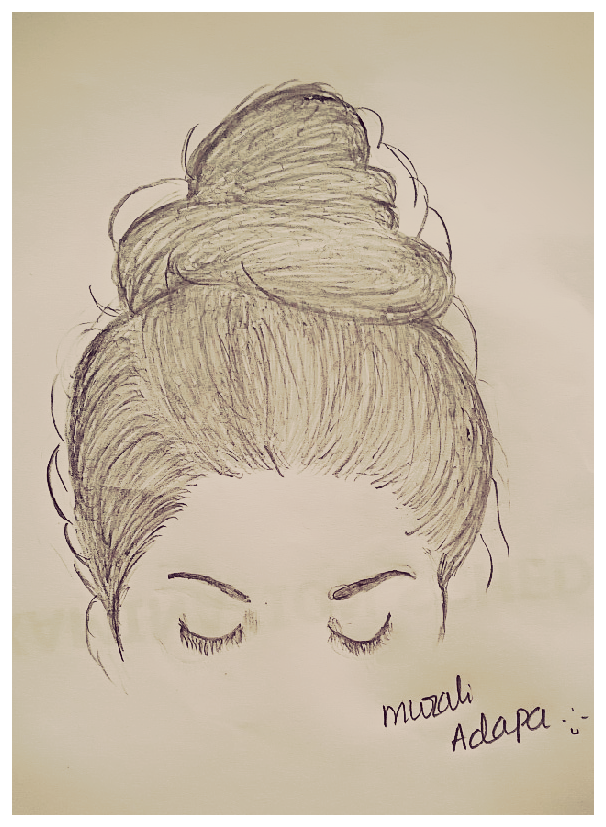 murali
Adapa